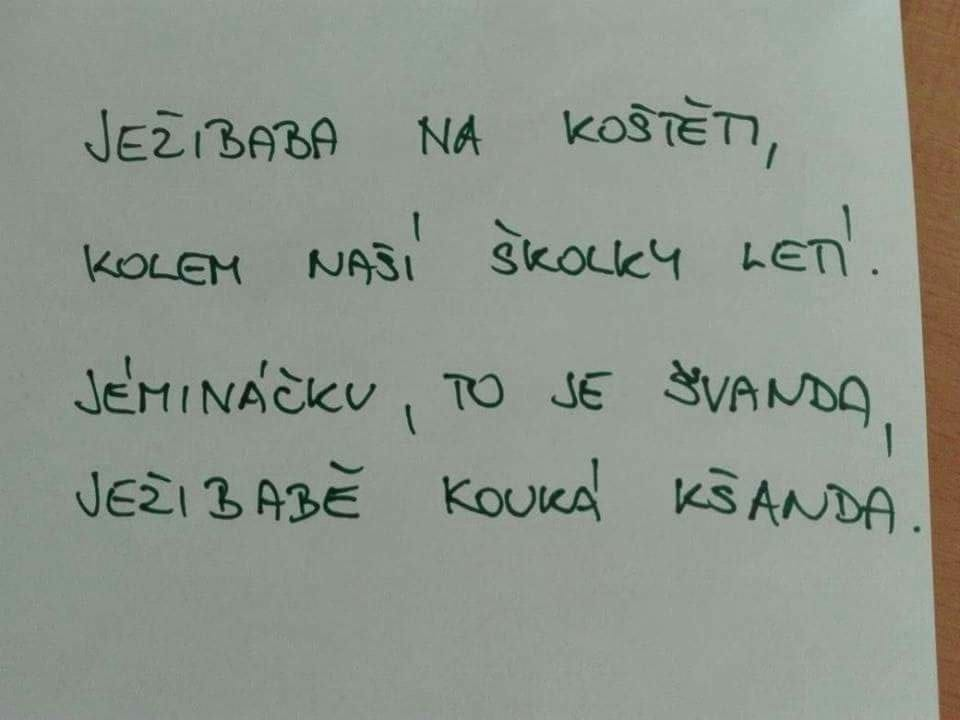 JEŽIBABA NA KOŠTĚTI,
KOLEM NAŠÍ ŠKOLKY LETÍ.
JÉMINÁČKU, TO JE ŠVANDA,
JEŽIBABĚ KOUKÁ KŠANDA.